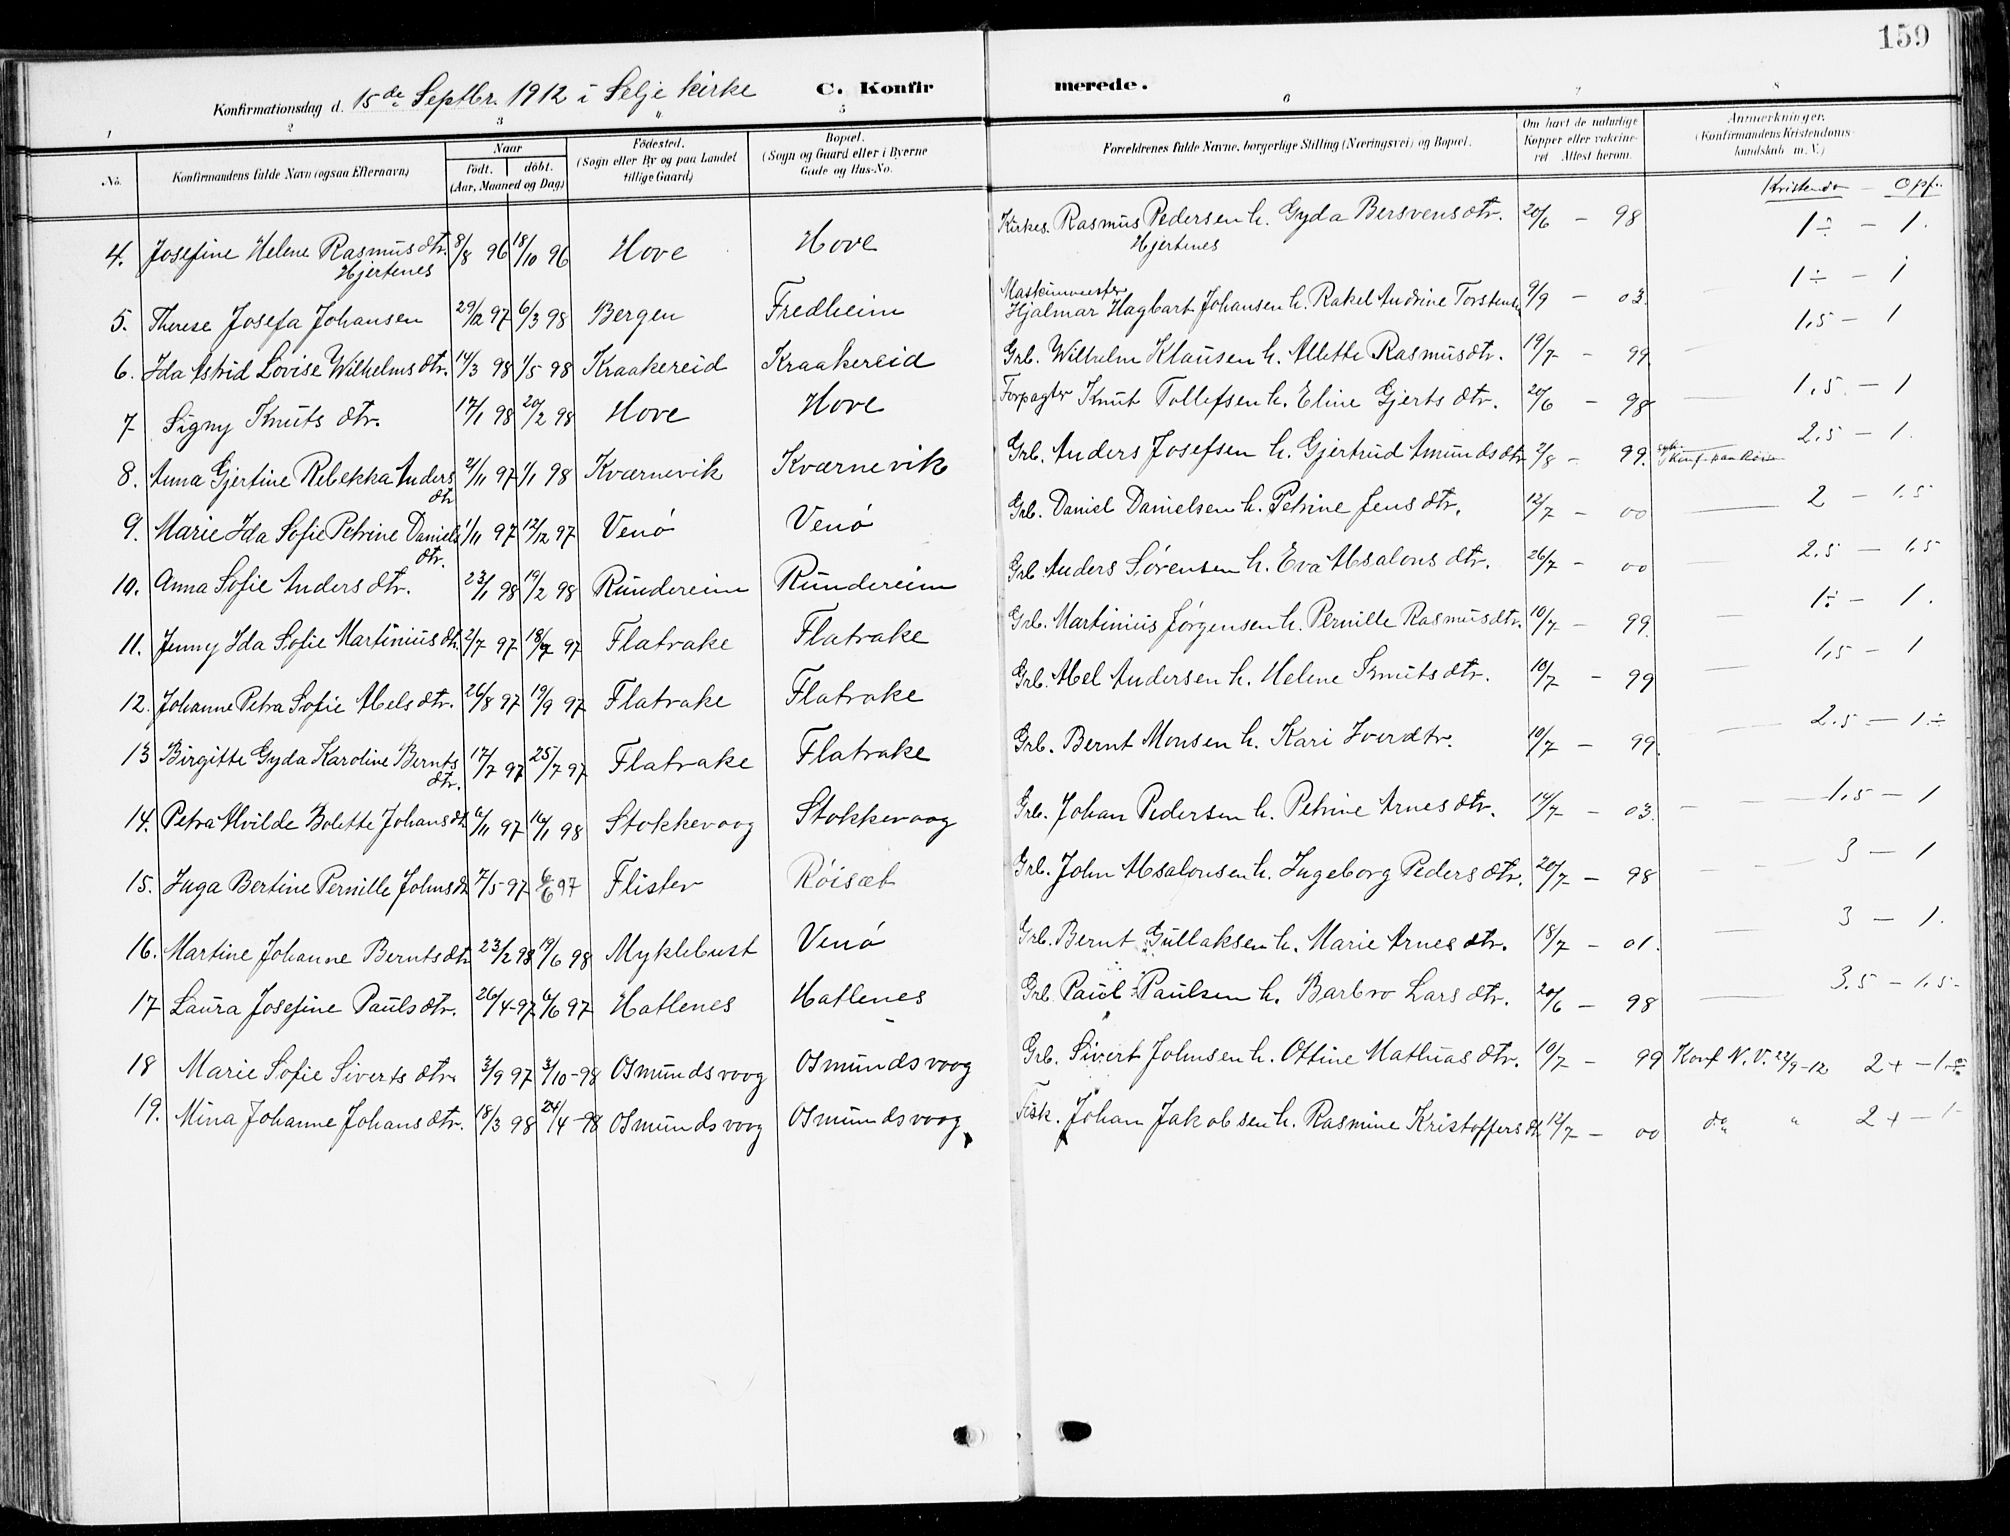 159
Konfirmationsdag d. 15de Septbr. 1912 i Selje kirke C. Konfirmerede.
1 2 3 4 5 6 7 8
No. Konfirmandens fulde Navn (ogsaa Efternavn) Naar født. døbt. (Aar, Maaned og Dag) Fødested. (Sogn eller By og paa Landet tillige Gaard) Bopæl. (Sogn og Gaard eller i Byerne Gade og Hus-No. Forældrenes fulde Navne, borgerlige Stilling (Næringsvei) og Bopæl. Om havt de naturlige Kopper eller vakcineret Attest herom. Anmerkninger. (Konfirmandens Kristendomskundskab m. V.)
Kristendo — Opf.
4. Josefine Helene Rasmusdtr. Hjertenes 8/8 96 18/10 96 Hove Hove Kirkes. Rasmus Pedersen h. Gyda Bersvensdtr. Hjertenes 20/6 – 98 1÷ – 1.
5. Therese Josefa Johansen 29/12 97 6/3 98 Bergen Fredheim Maskinmester Hjalmar Hagbart Johansen h. Rakel Andrine 9/9 – 03. 1÷ – 1
6. Ida Astrid Lovise Wilhelmsdtr. 14/3 98 1/5 98 Kraakereid Kraakereid Grb. Wilhelm Klausen h. Allette Rasmusdtr. 19/7 – 99. 1,5 – 1
7 Signy Knuts dtr. 17/1 98 20/2 98 Hove Hove Forpagter Knut Tollefsen h. Eline Gjerts dtr. 20/6 – 98 1,5 – 1
8. Anna Gjertine Rebekka Anders dtr 2/11 97 1/1 98 Kværnevik Kværnevik Grb. Anders Josefsen h. Gjertrud Amundsdtr 2/8 – 99. 2.5 – 1.
9. Marie Ida Sofie Petrine Daniels dtr. 1/11 97 12/12 97 Venø Venø Grb. Daniel Danielsen h. Petrine Jens dtr. 12/7 – 00 2 – 1.5
10. Anna Sofie Anders dtr. 23/1 98 19/2 98 Rundereim Rundereim Grb. Anders Sørensen h. Eva Absalons dtr. 26/7 – 00 2.5 – 1,5
11. Jenny Ida Sofie Martinius dtr. 2/7 97 18/7 97 Flatrake Flatrake Grb. Martinius Jørgensen h. Pernille Rasmusdtr. 10/7 – 99. 1÷ – 1.
12. Johanne Petra Sofie Abels dtr. 26/8 97 19/9 97 Flatrake Flatrake Grb. Abel Andersen h. Helene Knuts dtr. 10/7 – 99 1,5 – 1
13 Birgitte Gyda Karoline Bernts dtr. 17/7 97 25/7 97 Flatrake Flatrake Grb. Bernt Monsen h. Kari Iverdtr. 10/7 – 99. 2.5 – 1÷
14. Petra Alvilde Bolette Johans dtr 6/11 97 16/1 98 Stokkevaag Stokkevaag Grb. Johan Pedersen h. Petrine Arnes dtr. 14/7 – 03. 1,5 – 1
15. Inga Bertine Pernille Johns dtr 7/5 – 97 6/6 97 Flister Røisæt Grb. John Absalonsen h. Ingeborg Peders dtr. 20/7 – 98 3 – 1
16. Martine Johanne Bernts dtr 23/2 98 19/6 98 Myklebust Venø Grb. Bernt Gullaksen h. Marie Arnes dtr. 18/7 – 01. 3 – 1.
17 Laura Josefine Pauls dtr. 26/4 – 97 6/6 97 Hatlenes Hatlenes Grb. Paul Paulsen h. Barbro Lars dtr. 20/6 – 98 3.5 – 1,5
18 Marie Sofie Siverts dtr. 3/9 97 3/10 – 98 Osmundsvaag Osmundsvaag Grb. Sivert Johnsen h. Ottine Mathias dtr. 10/7 – 99 Konf N. V. 22/9 – 12 2+ – 1.÷
19. Mina Johanne Johans dtr. 18/3 98 24/4 – 98 Osmundsvaag Osmundsvaag Fisk. Johan Jakobsen h. Rasmine Kristoffers dtr 12/7 – 00 do " 2+ – 1